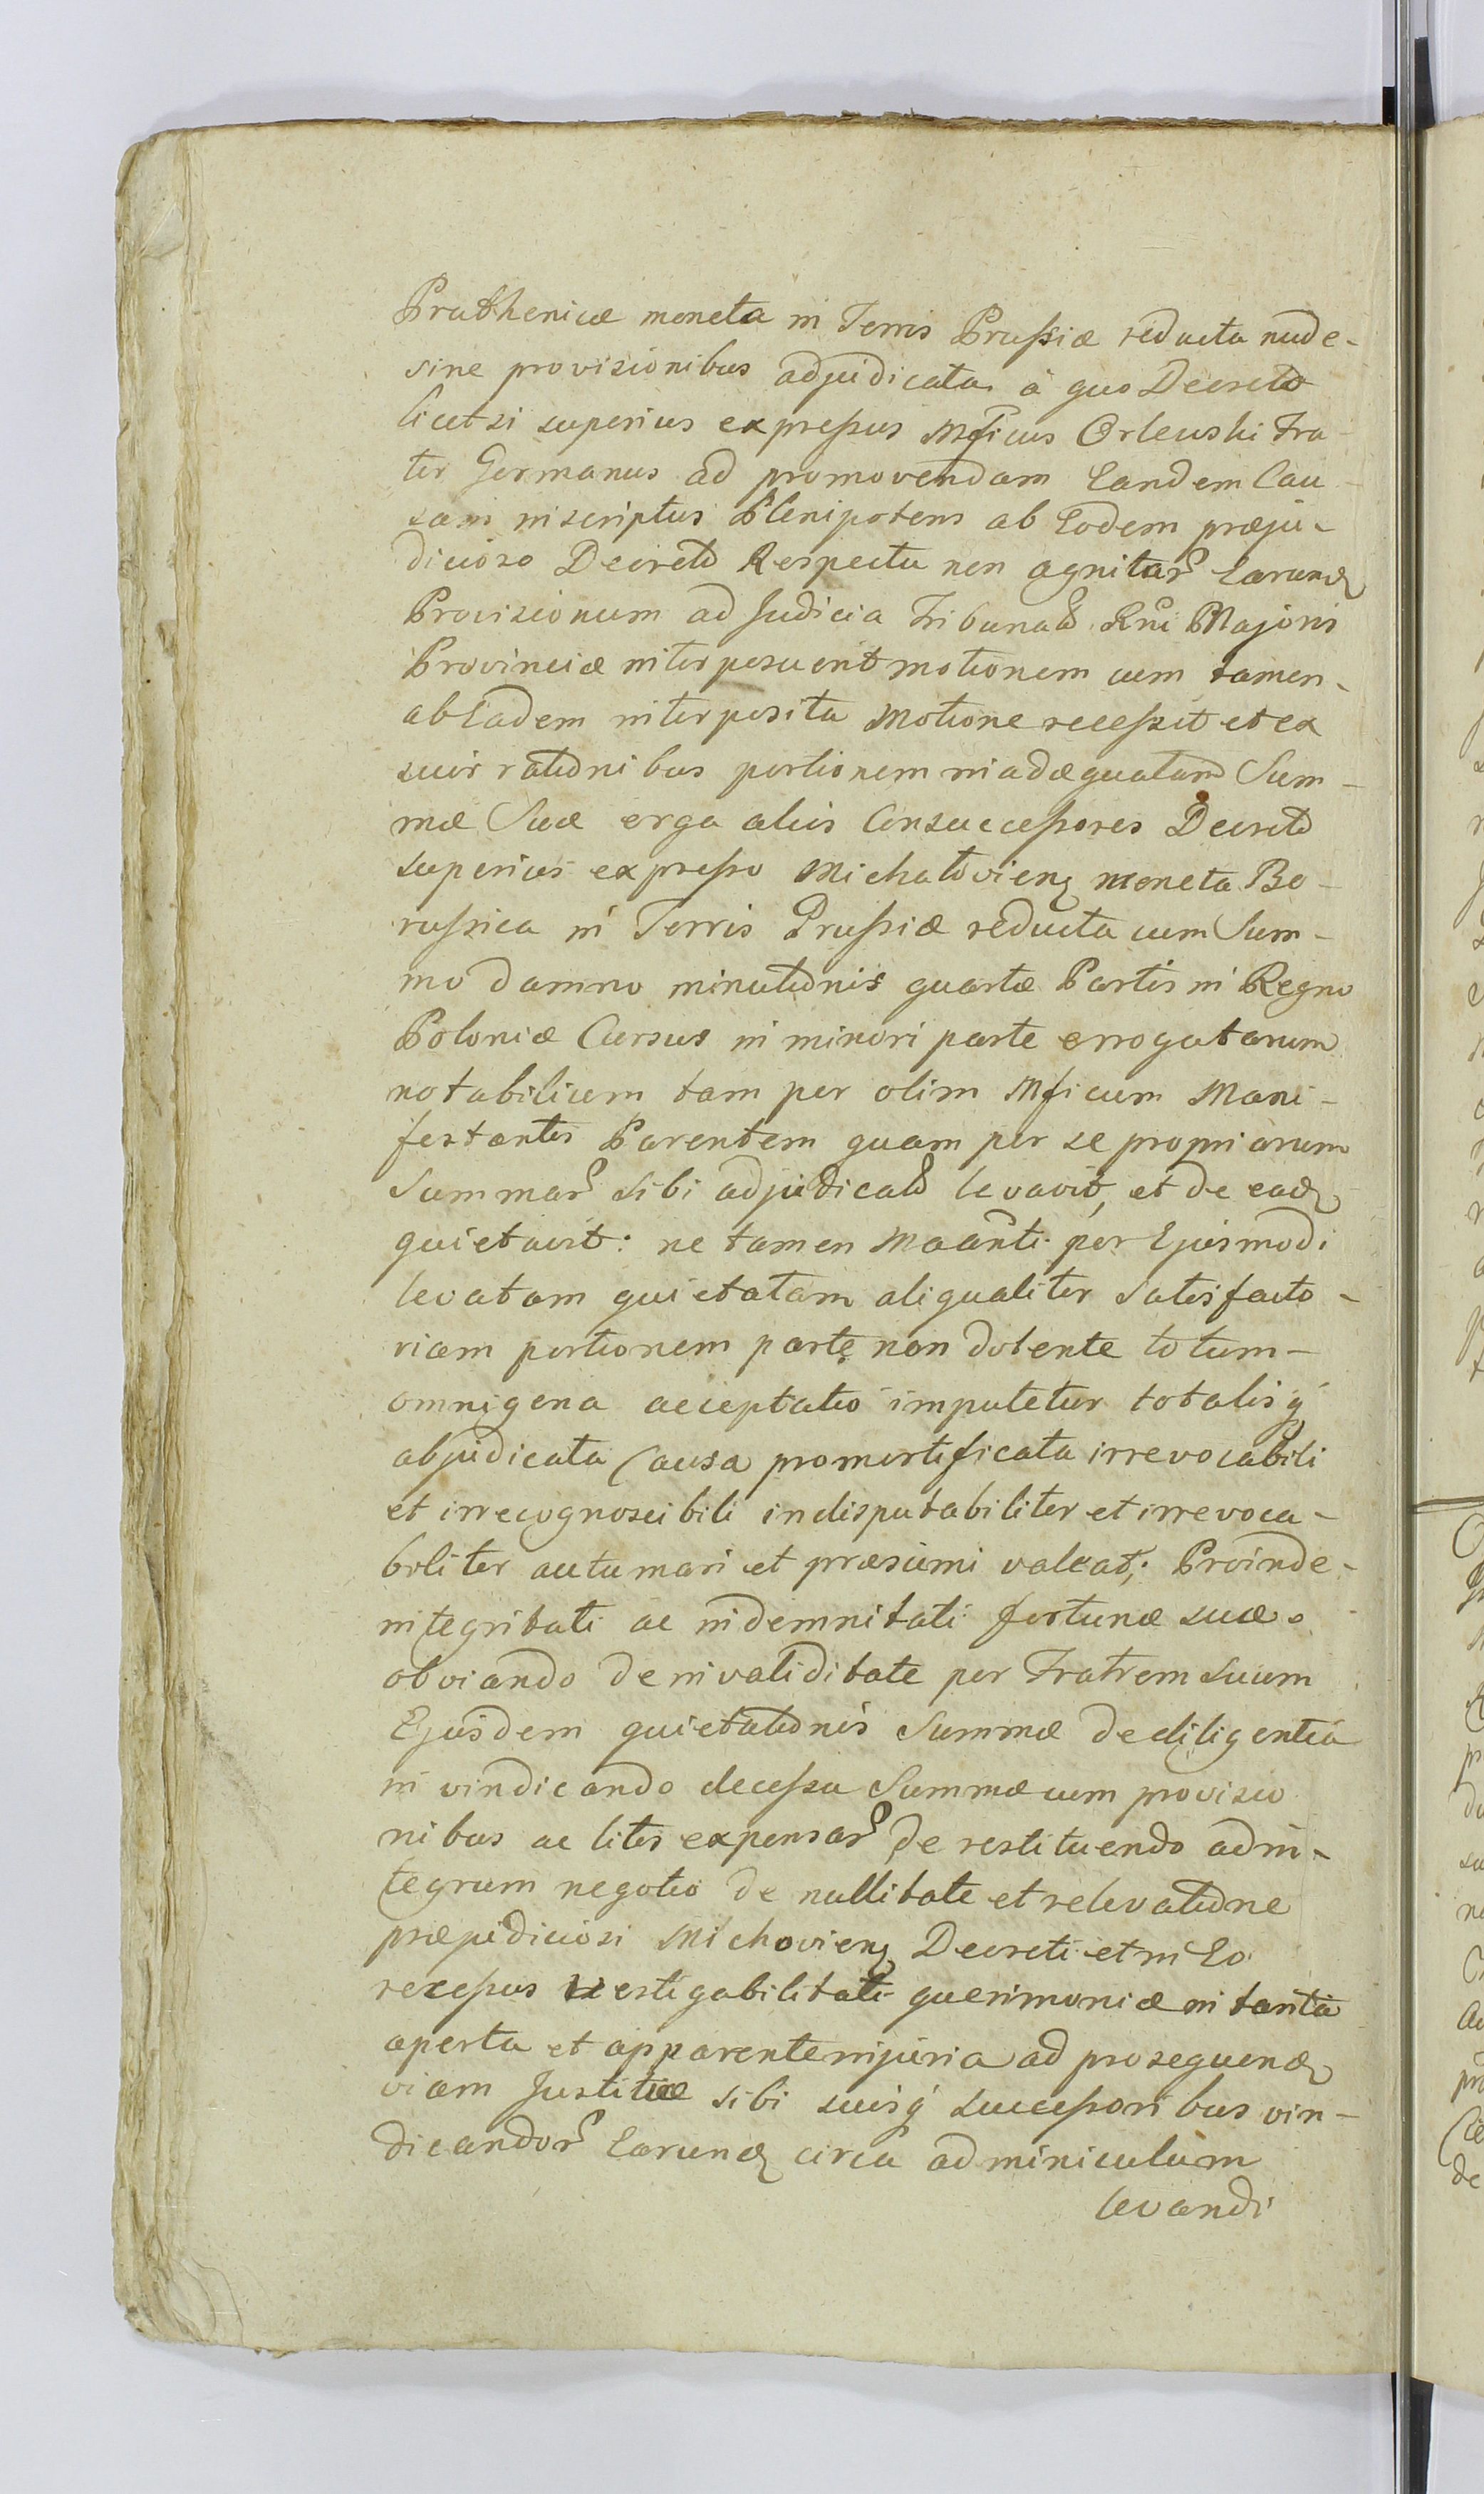 Pruthenicæ moneta in Terris Prussiæ reducta nude-
sine provisionibus adjudicata à quo Decreto
licet si superius expressus Mficus Orlewski Fra-
ter Germanus ad promovendam Eandem Cau-
sam inscriptus Plenipotens ab Eodem præju-
dicioso Decreto Respectu non agnitar Earund
Provisionum ad Judicia Tribunal Rni Majoris
Provinciæ interposuerit motionem cum tamen-
ab Eadem interposita Motione recessit et ex
suis rationibus portionem inadæquatam Sum-
mæ Suæ erga alios Consuccessores Decreto
superius expresso Michalovien moneta Bo-
russica in Terris Prussiæ reducta cum Sum-
mo damno minutionis quartæ Partis in Regno
Poloniæ Cursus in minori parte errogatarum
notabilium tam per olim Mficum Mani-
festantis Parentem quam per se propriarum
Summar sibi adjudicat levavit, et de ead
quietavit: ne tamen Maanti per Ejusmodi
levatam quietatam aliqualiter satisfacto-
riam portionem parte non dolente totum-
omnigena acceptatio imputetur totalisq
abjudicata Causa promortificata irrevocabili
et irrecognoscibili indisputabiliter et irrevoca-
biliter autumari et præsumi valeat; Proinde-
integritati ac indemnitati fortunæ suæ
obviando de invaliditate per Fratrem Suum
Ejusdem quietationis Summæ de diligentia
in vindicando decessu Summæ cum provisio
nibus ac litis expensar de restituendo ad in-
tegrum negotio de nullitate et relevatione
præjudiciosi Michovien Decreti et in Eo
recessus vestigabilitate querimoniæ in tanta
aperta et apparente injuria ad prosequend
viam Justitiæ sibi suisq successoribus vin-
dicandor Earund circa adminiculum
levandi